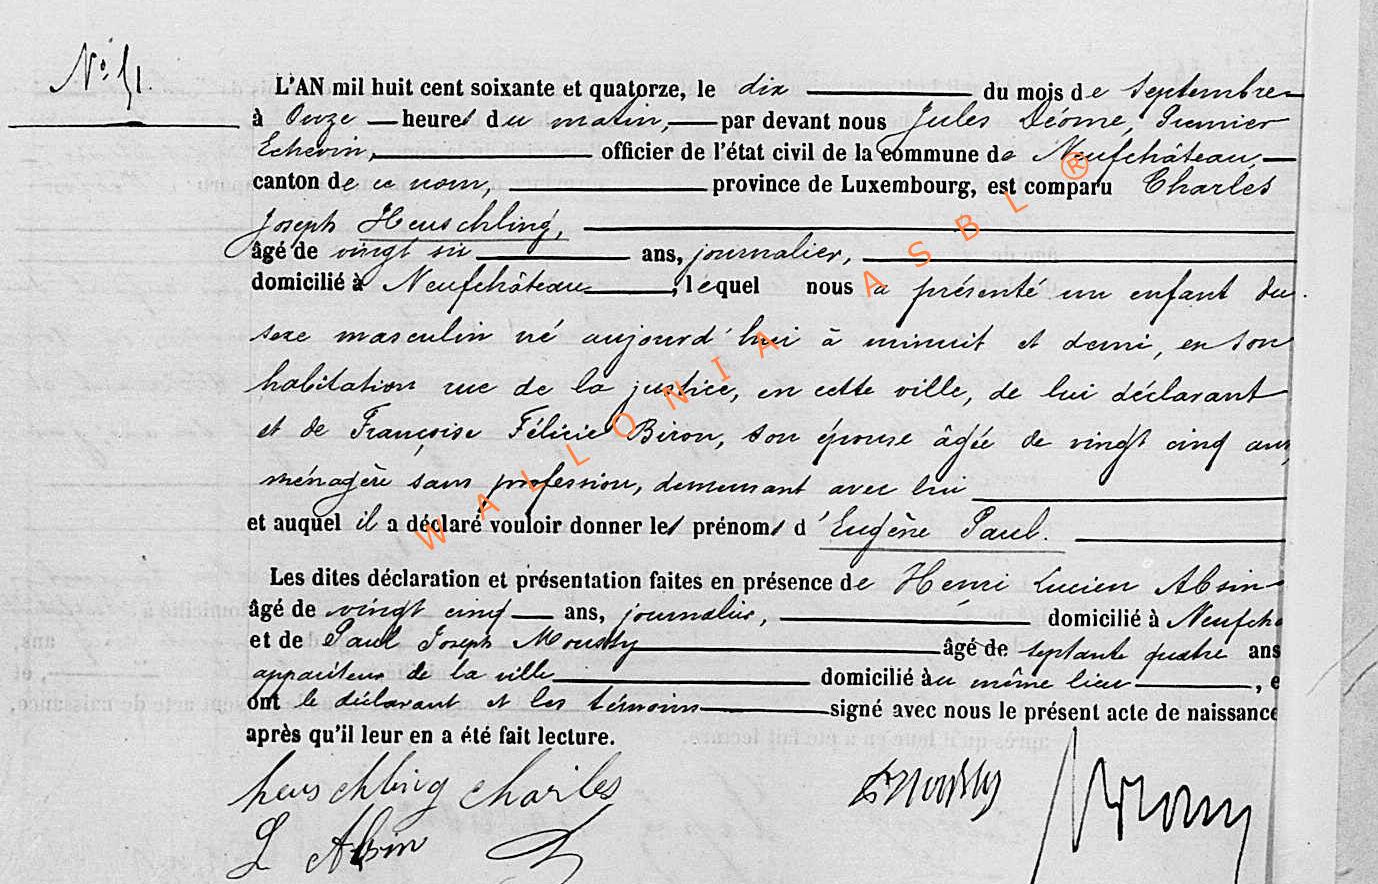 N° 51.
L'AN mil huit cent soixante et quatorze, le dix du mois de Septembre
à Onze heures du matin, par devant nous Jules Déome, Premier
Echevin, officier de l'état civil de la commune de Neufchâteau,
canton de ce nom, province de Luxembourg, est comparu Charles
Joseph Heuschling,
âgé de vingt six ans, journalier,
domicilié à Neufchâteau, lequel nous a présenté un enfant du
sexe masculin né aujourd'hui à minuit et demi, en son
habitation rue de la justice, en cette ville, de lui déclarant
et de Françoise Félicie Biron, son épouse âgée de vingt cinq ans
ménagère sans profession, demeurant avec lui
et auquel il a déclaré vouloir donner les prénoms d'Eugène Paul.
Les dites déclaration et présentation faites en présence de Henri Lucien Absin
âgé de vingt cinq ans, journalier, domicilié à Neufch
et de Paul Joseph Moussy âgé de septante quatre ans
appariteur de la ville domicilié au même lieu, e
ont le déclarant et les témoins signé avec nous le présent acte de naissance
après qu'il leur en a été fait lecture.
heuschling charles
L Absin
WALLONIA ASBL ®